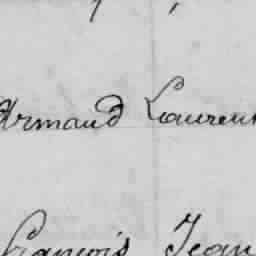 Armand Lauren
François Jean